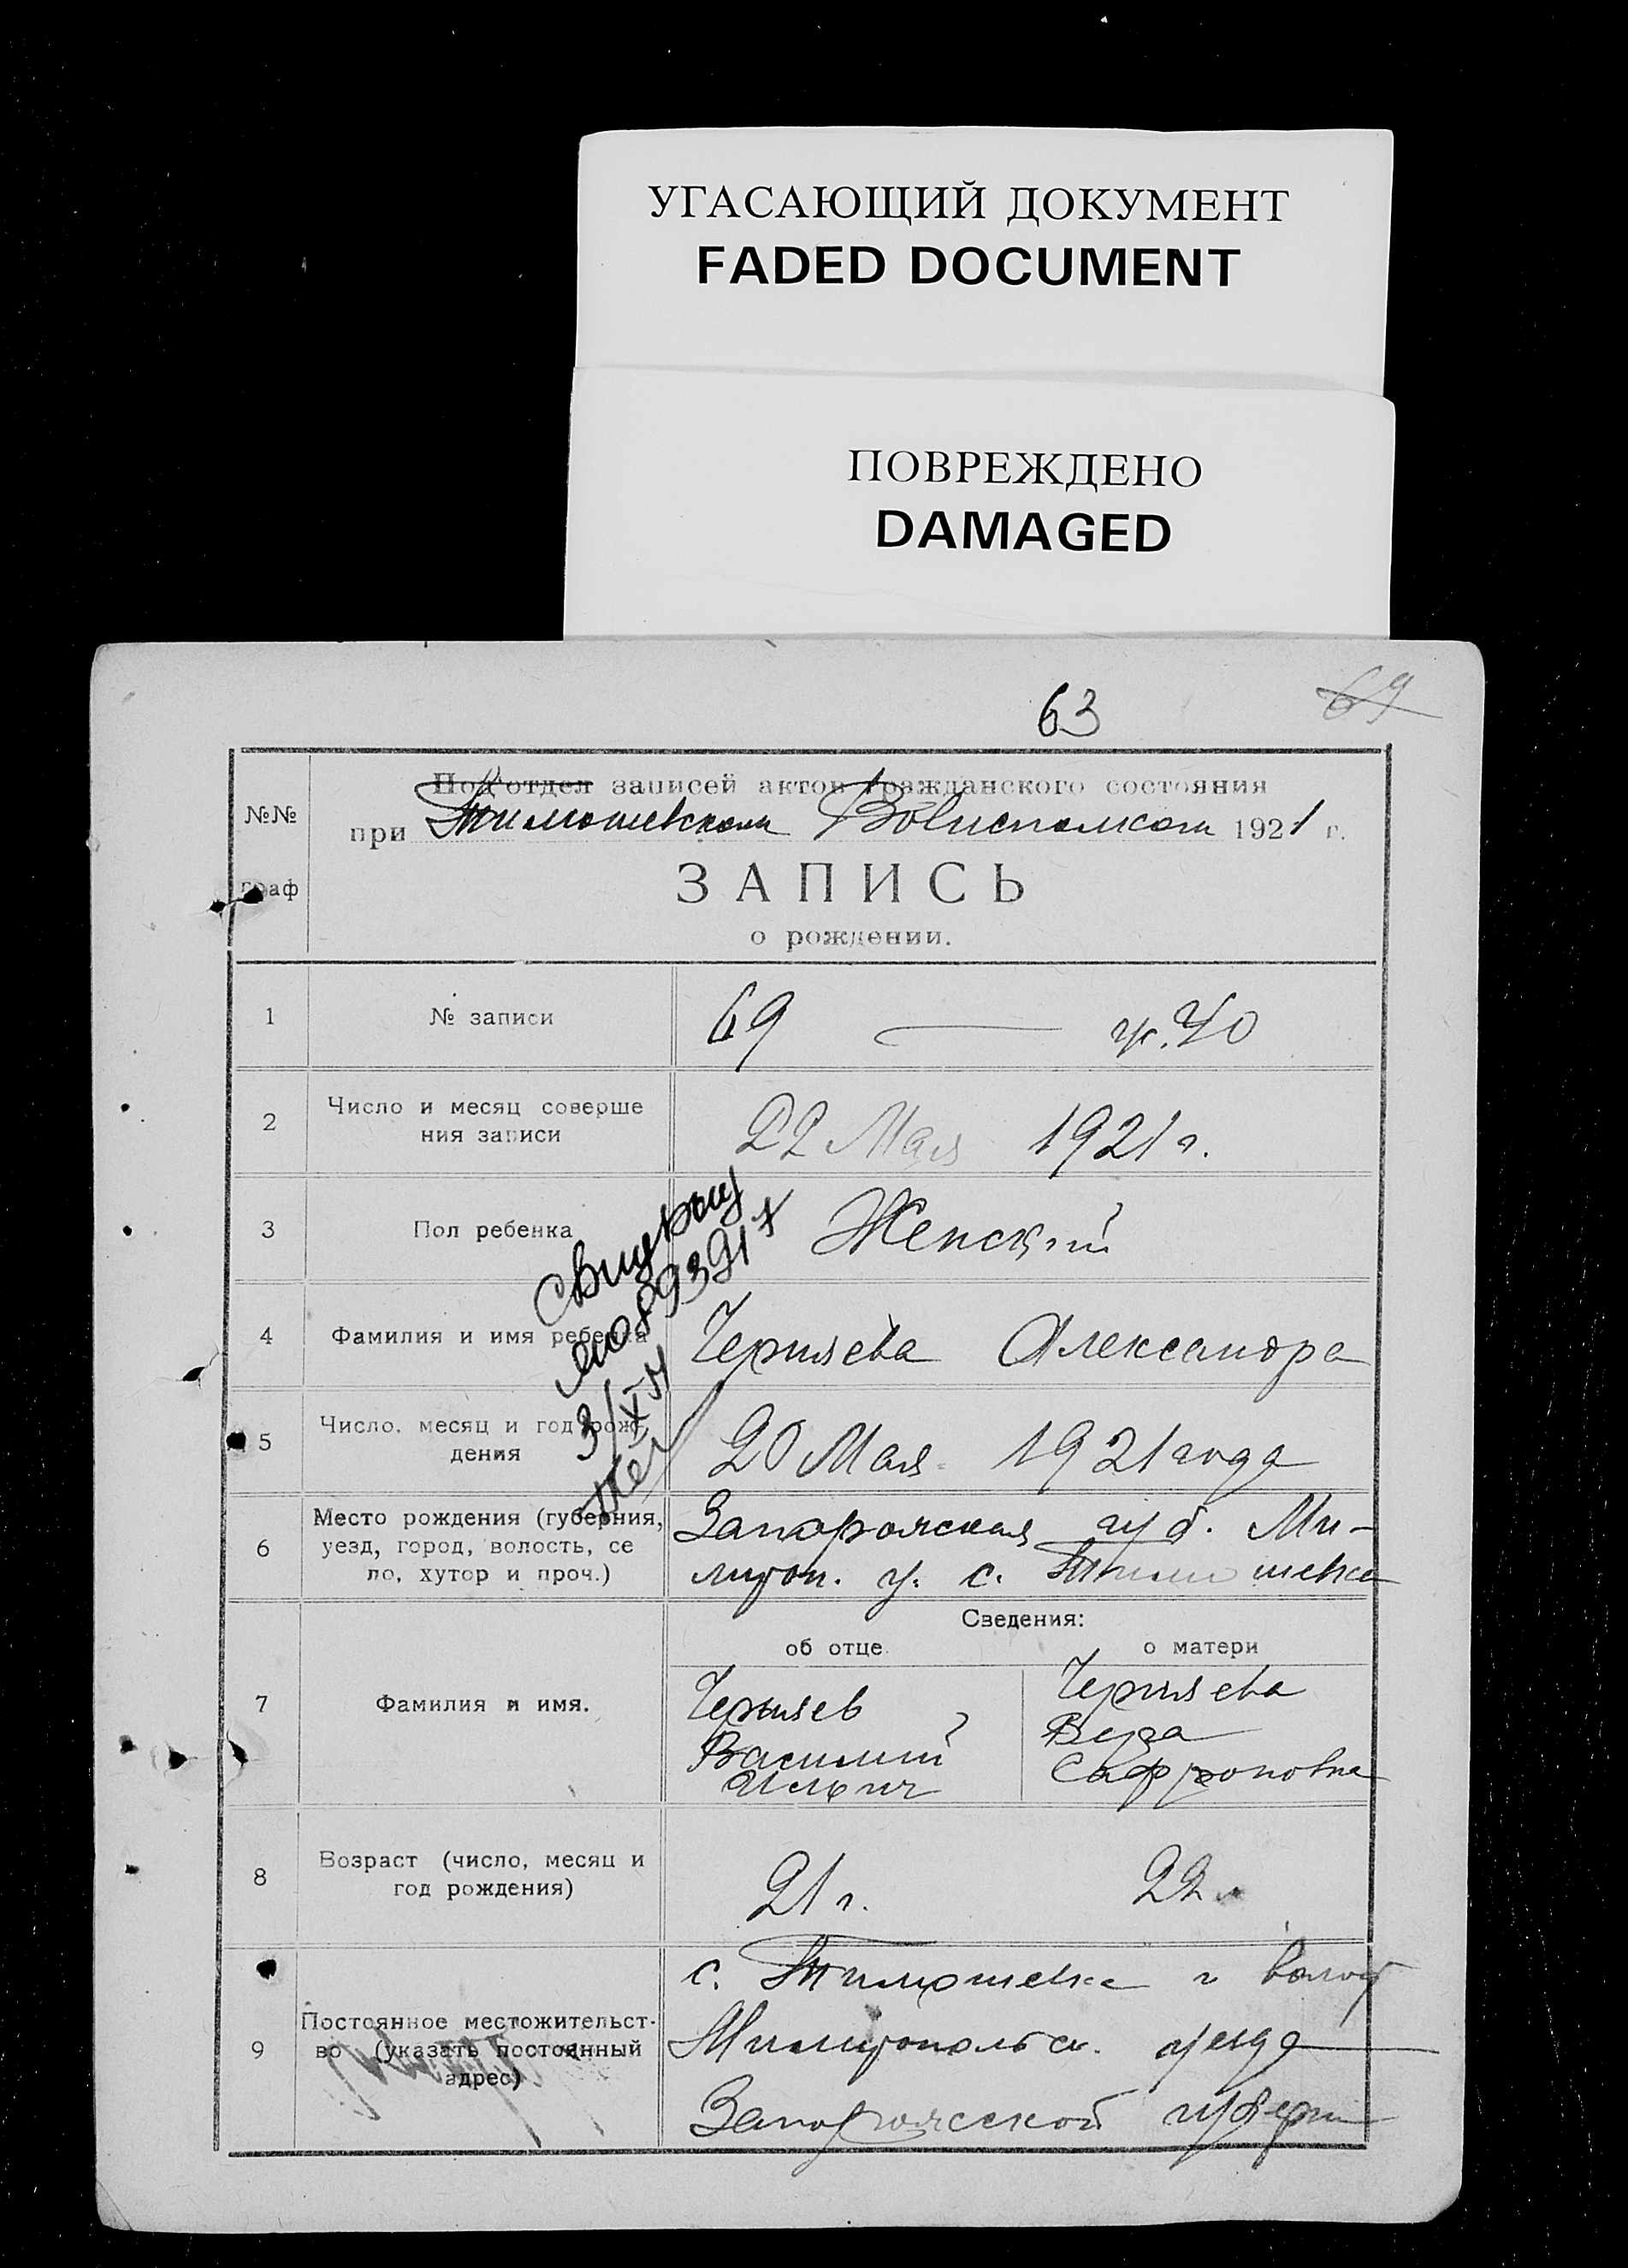 УГАСАЮЩИЙ ДОКУМЕНТ
FADED DOCUMENT
ПОВРЕЖДЕНО
DAMAGED
63
69
№№
граф
Под'отдел записей актов гражданского состояния
при Тимошевском Волисполком 1921 г.
ЗАПИСЬ
о рождении.
1
№ записи
69 — 40
2
Число и месяц соверше
ния записи
22 Мая 1921 г.
3
Пол ребенка
Женский
4
Фамилия и имя ребенка
Черняева Александра
5
Число, месяц и год рож-
дения
20 Мая 1921 года
6
Место рождения (губерния,
уезд, город, волость, се
ло, хутор и проч.)
Запорожская губ. Ми-
литоп. у. с. Тимошевка
Сведения:
об отце
о матери
7
Фамилия и имя.
Черняев
Василий
Ильич
Черняева
Вера
Сафроновна
8
Возраст (число, месяц и
год рождения)
21 г.
22
9
Постоянное местожительст-
во (указать постоянный
адрес)
с. Тимошевка
Милитопольск. уезда
Запорожской губерни